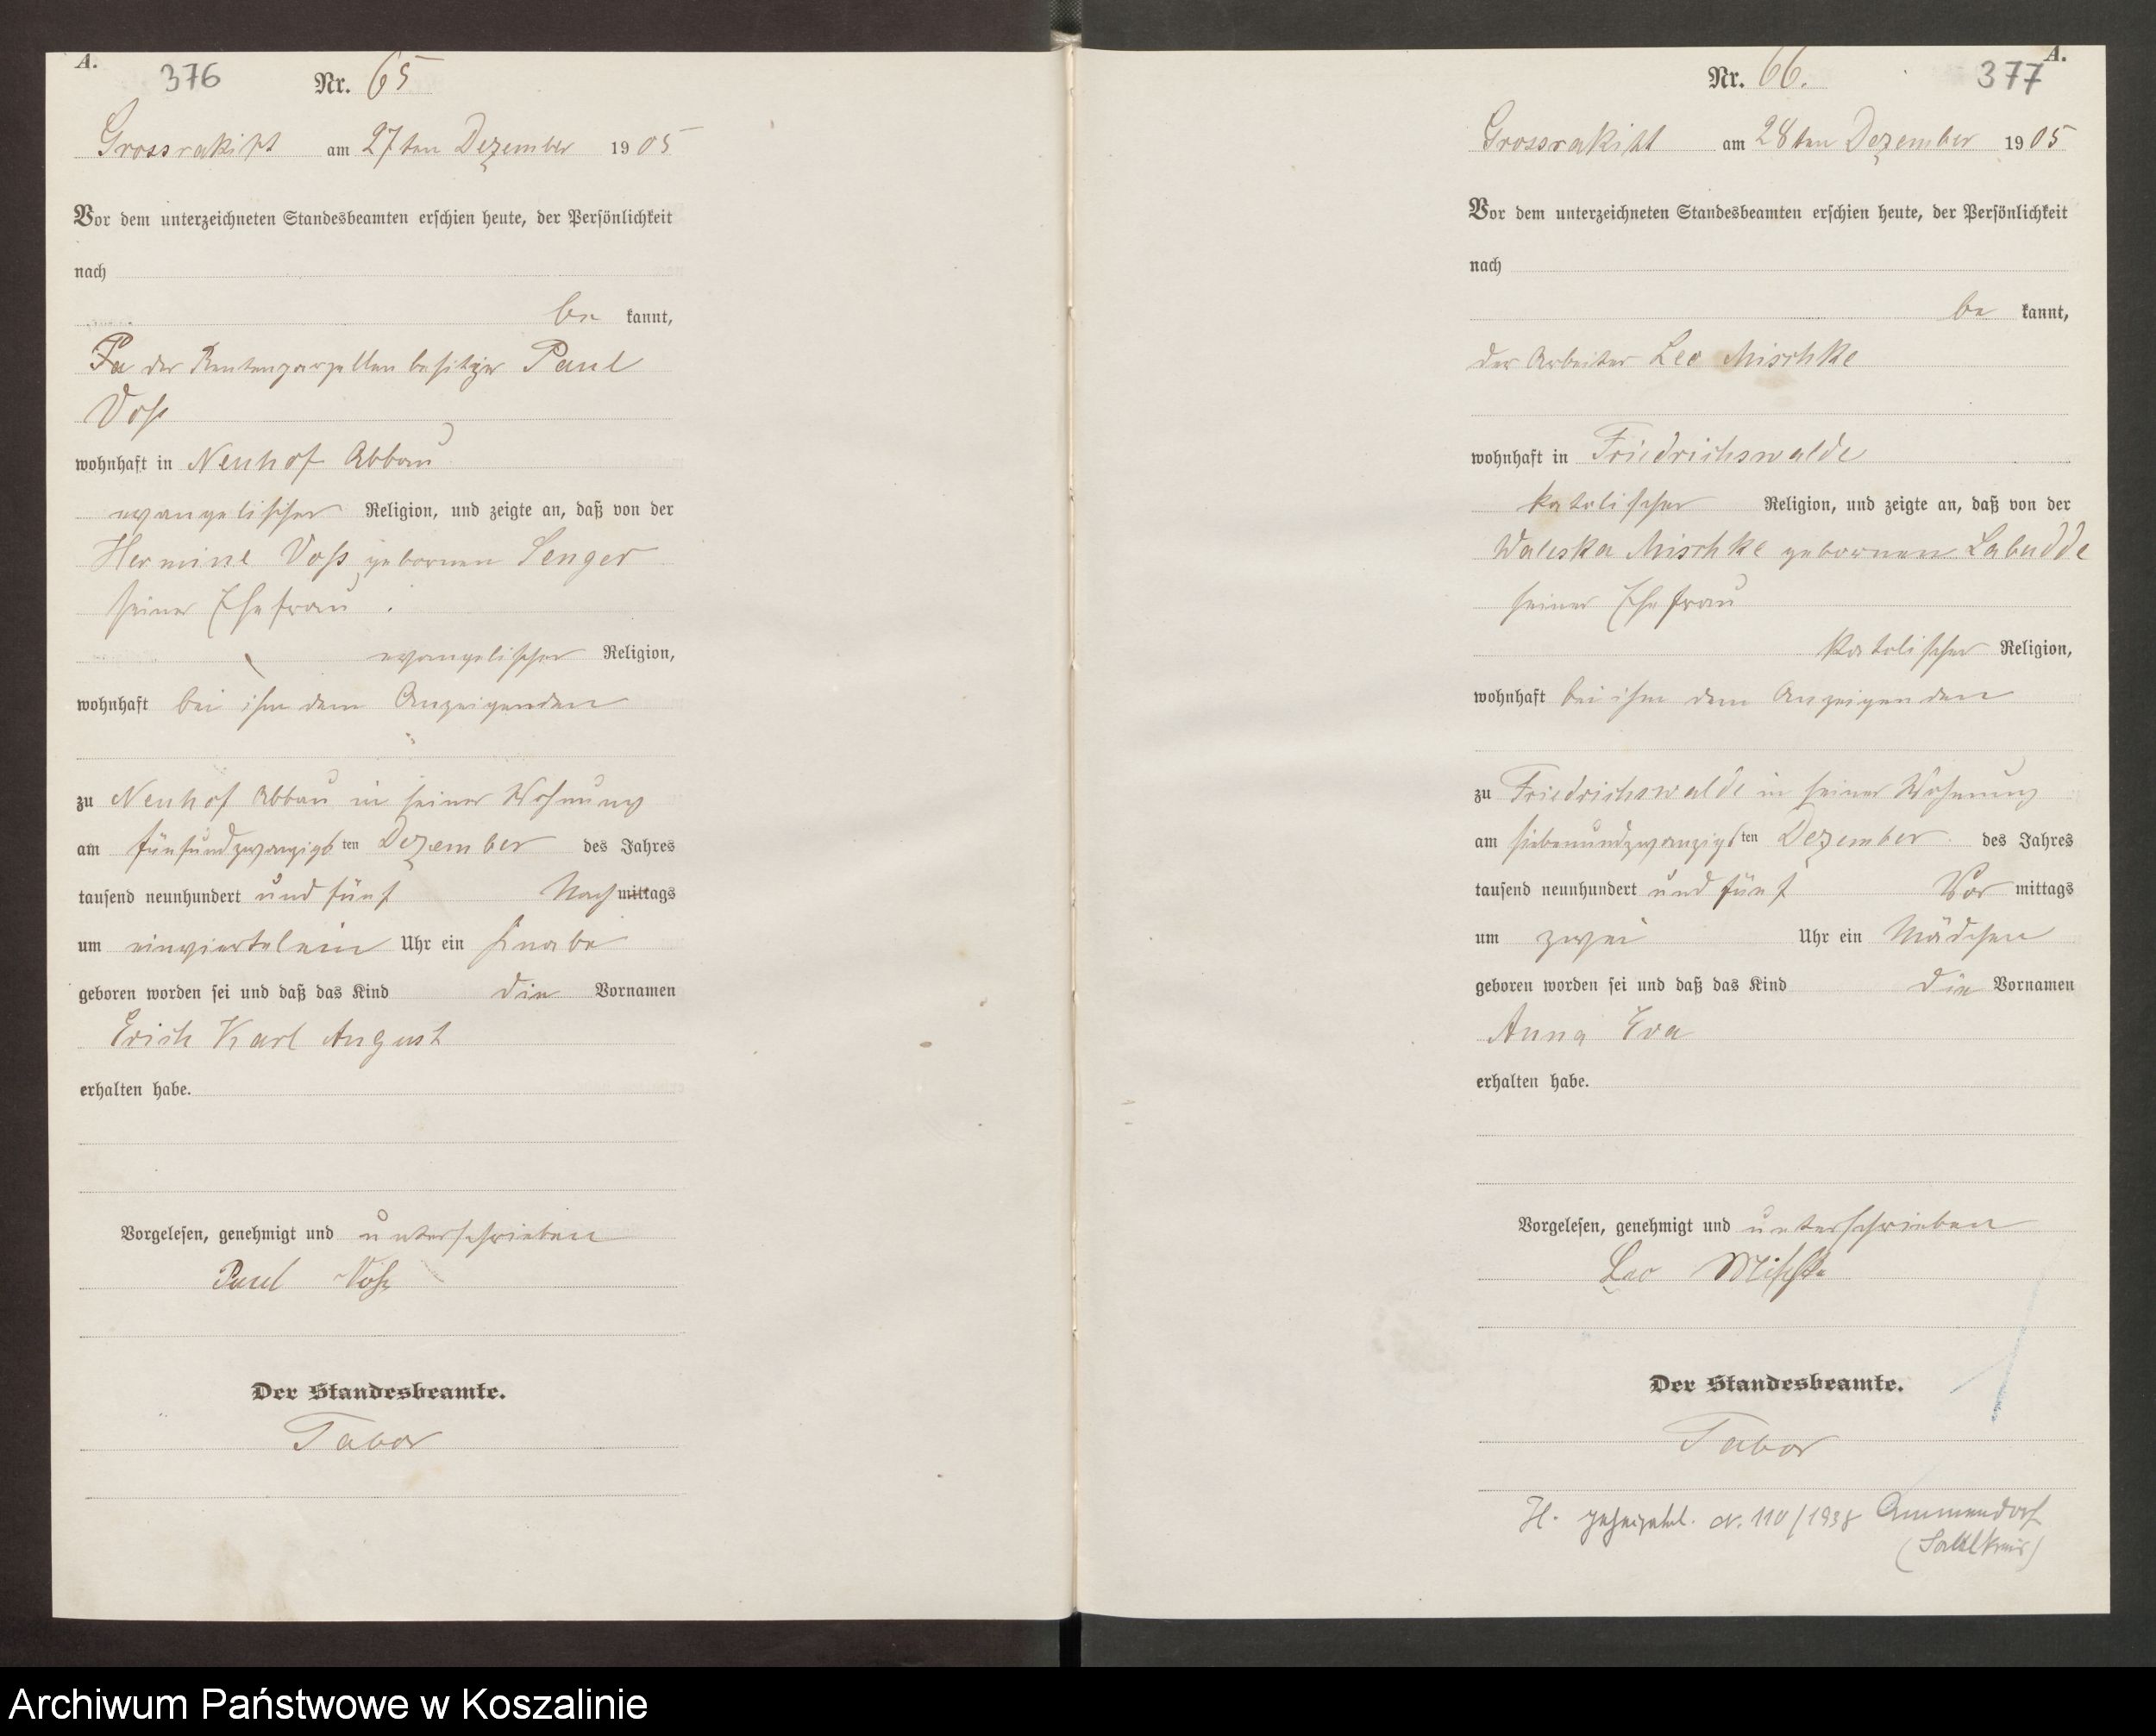 A.
376 Nr. 65
Grossrakitt am 27ten Dezember 1905
Vor dem unterzeichneten Standesbeamten erschien heute, der Persönlichkeit
nach
be kannt,
der Rentenparzellenbesitzer Paul
Voß
wohnhaft in Neuhof Abbau
evangelischer Religion, und zeigte an, daß von der
Hermine Voß gebornen Senger
seiner Ehefrau
evangelischer Religion,
wohnhaft bei ihm dem Anzeigenden
zu Neuhof Abbau in seiner Wohnung
am fünfundzwanzigsten Dezember des Jahres
tausend neunhundert und fünf Nachmittags
um einviertelein Uhr ein Knabe
geboren worden sei und daß das Kind die Vornamen
Erich Karl August
erhalten habe.
Vorgelesen, genehmigt und unterschrieben
Paul Voß
Der Standesbeamte.
Tabor
A.
Nr. 66. 377
Grossrakitt am 28ten Dezember 1905
Vor dem unterzeichneten Standesbeamten erschien heute, der Persönlichkeit
nach
be kannt,
der Arbeiter Leo Mischke
wohnhaft in Friedrichswalde
katolischer Religion, und zeigte an, daß von der
Waleska Mischke gebornen Labudde
seiner Ehefrau
katolischer Religion,
wohnhaft bei ihm dem Anzeigenden
zu Friedrichswalde in seiner Wohnung
am siebenundzwanzigsten Dezember des Jahres
tausend neunhundert und fünf Vor mittags
um zwei Uhr ein Mädchen
geboren worden sei und daß das Kind die Vornamen
Anna Eva
erhalten habe.
Vorgelesen, genehmigt und unterschrieben
Leo Mischke
Der Standesbeamte.
Tabor
H. geheiratet. N. 110/1938 Ammendorf
(Saalkreis)
Archiwum Państwowe w Koszalinie